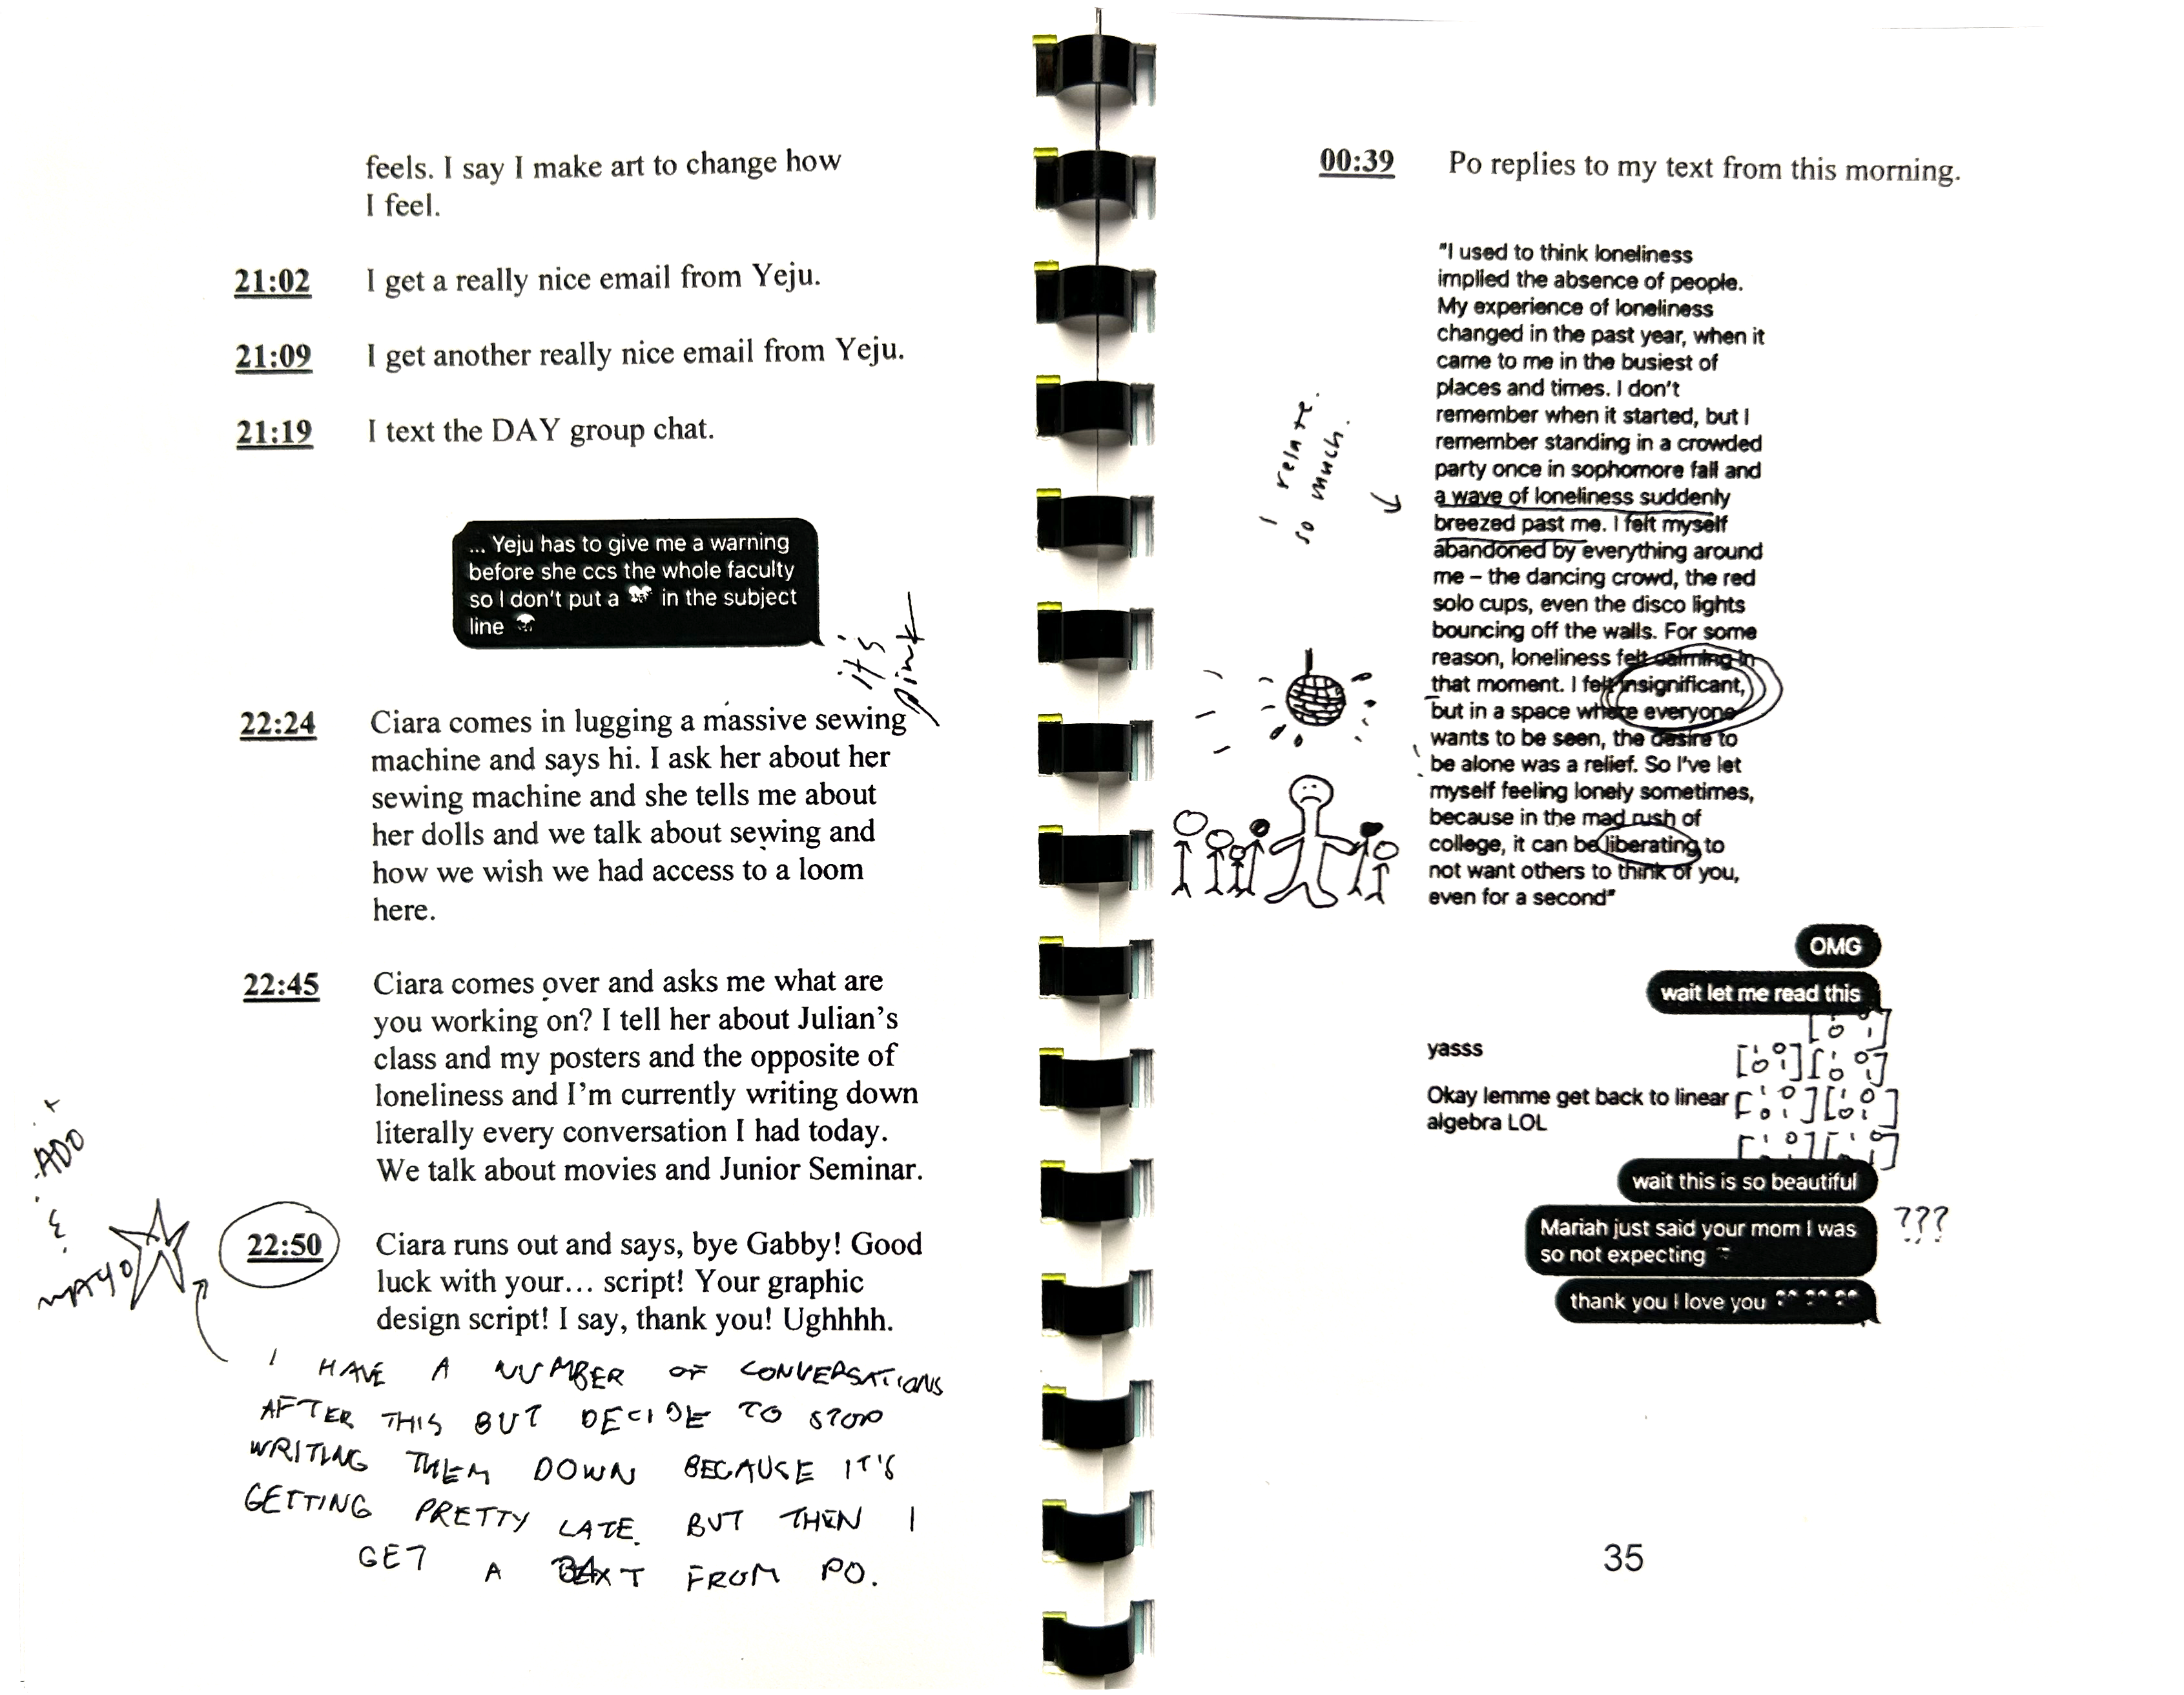 feels. I say I make art to change how
I feel.
21:02 I get a really nice email from Yeju.
21:09 I get another really nice email from Yeju.
21:19 I text the DAY group chat.
... Yeju has to give me a warning
before she ccs the whole faculty
so I don't put a in the subject
line
it's
pink
22:24 Ciara comes in lugging a massive sewing
machine and says hi. I ask her about her
sewing machine and she tells me about
her dolls and we talk about sewing and
how we wish we had access to a loom
here.
22:45 Ciara comes over and asks me what are
you working on? I tell her about Julian's
class and my posters and the opposite of
loneliness and I'm currently writing down
literally every conversation I had today.
We talk about movies and Junior Seminar.
22:50 Ciara runs out and says, bye Gabby! Good
luck with your... script! Your graphic
design script! I say, thank you! Ughhhh.
I HAVE A NUMBER OF CONVERSATIONS
AFTER THIS BUT DECIDE TO STOP
WRITING THEM DOWN BECAUSE IT'S
GETTING PRETTY LATE. BUT THEN I
GET A TEXT FROM PO.
00:39 Po replies to my text from this morning.
"I used to think loneliness
implied the absence of people.
My experience of loneliness
changed in the past year, when it
came to me in the busiest of
places and times. I don't
remember when it started, but I
remember standing in a crowded
party once in sophomore fall and
a wave of loneliness suddenly
breezed past me. I felt myself
abandoned by everything around
me – the dancing crowd, the red
solo cups, even the disco lights
bouncing off the walls. For some
reason, loneliness felt calming in
that moment. I felt insignificant,
but in a space where everyone
wants to be seen, the desire to
be alone was a relief. So I've let
myself feeling lonely sometimes,
because in the mad rush of
college, it can be liberating to
not want others to think of you,
even for a second"
I relate.
so much.
OMG
wait let me read this
yasss
Okay lemme get back to linear
algebra LOL
wait this is so beautiful
Mariah just said your mom I was
so not expecting
???
thank you I love you
35